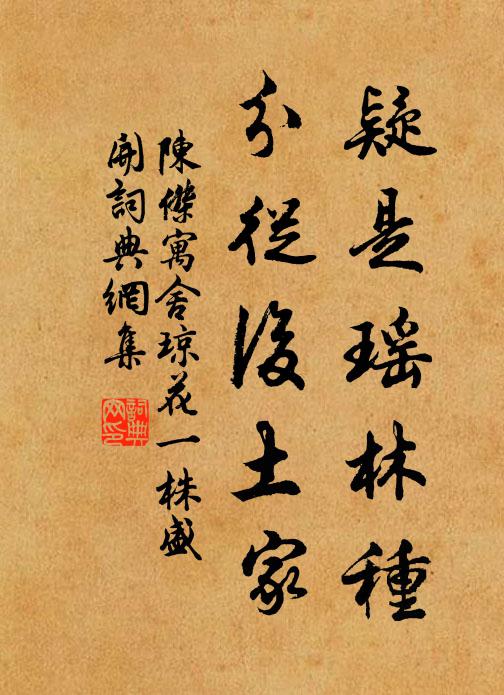 疑是瑶林種
分從後土家
陳傑寓舍琼花一株盛
開詞典網集
詞典網印